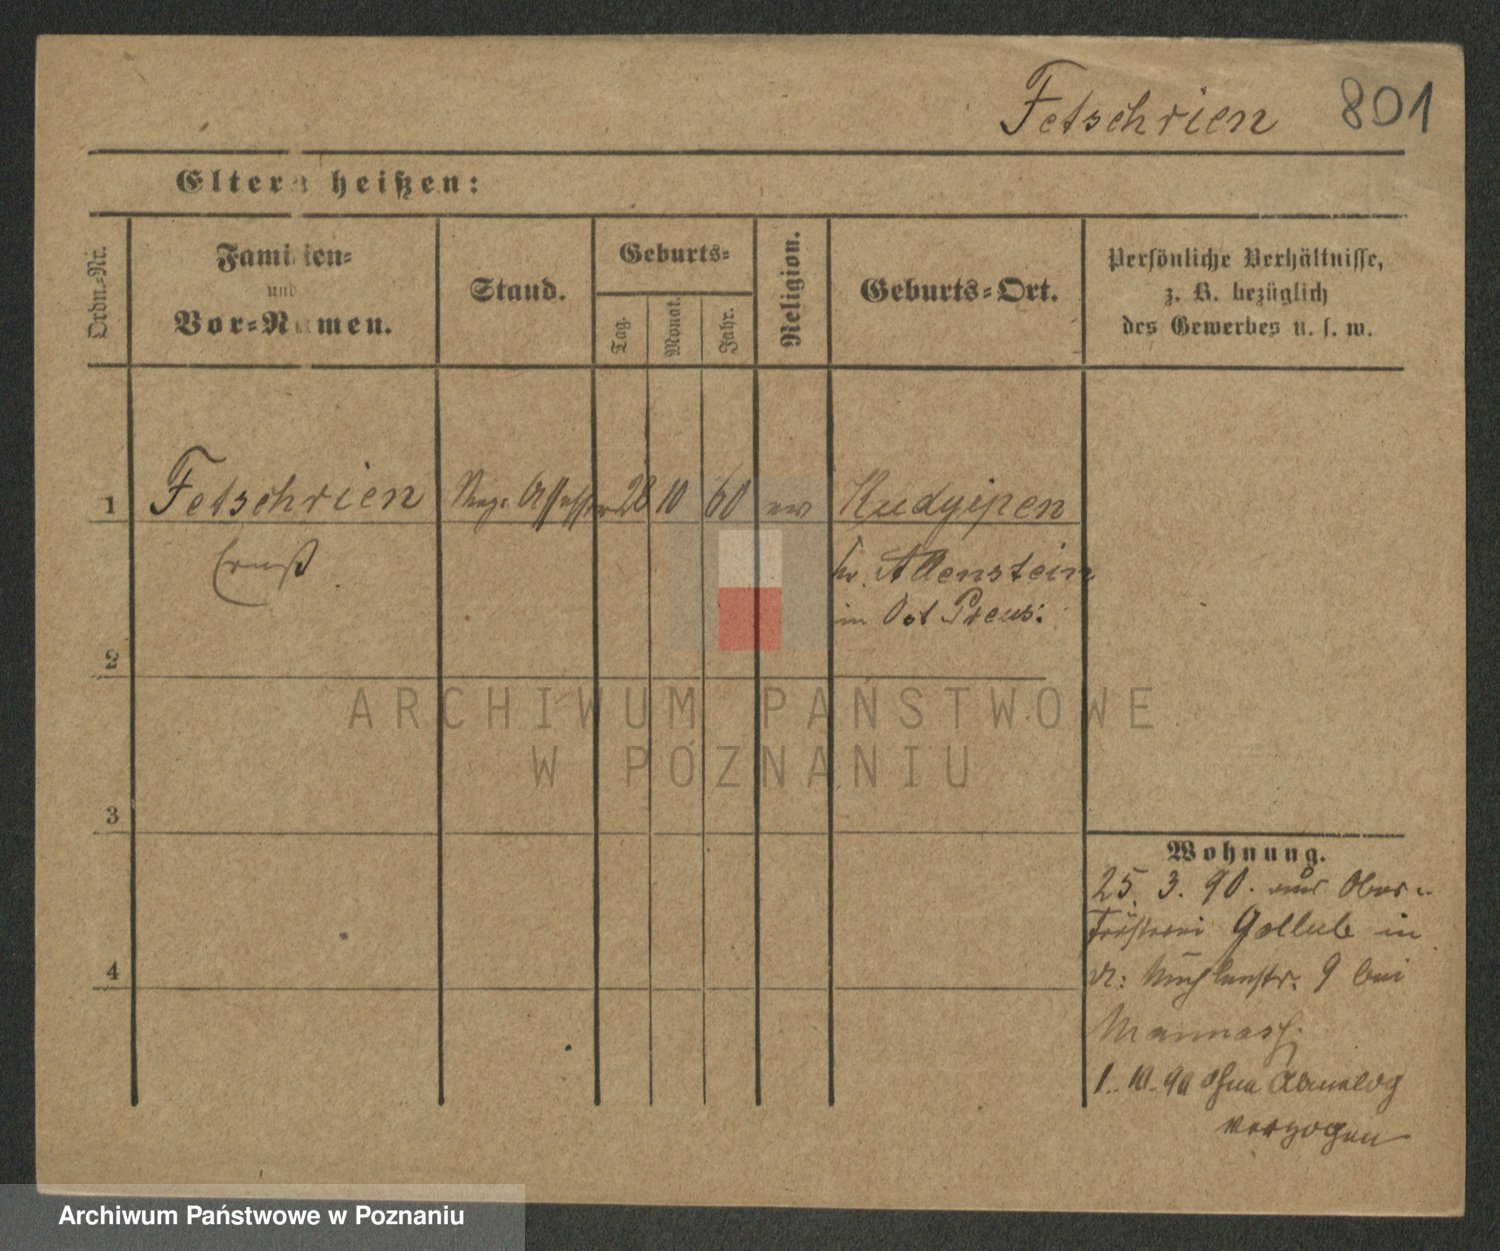 Fetschrien 801
Eltern heißen:
Ordn.-Nr.
Familien-
und
Vor-Namen.
Stand.
Geburts-
Tag.
Monat.
Jahr.
Religion.
Geburts-Ort.
Persönliche Verhältnisse,
z. B. bezüglich
des Gewerbes u. s. w.
1 Fetschrien Reg: Assessor 28 10 60 ev Kudyipen
Ernst
Kr. Allenstein
in Ost Preus:
2
ARCHIWUM PAŃSTWOWE
W POZNANIU
3
4
Wohnung.
25. 3. 90. aus Ober-
Försterei Gollub in
9 bei
1. 10. 90 ohne
verzogen
Archiwum Państwowe w Poznaniu